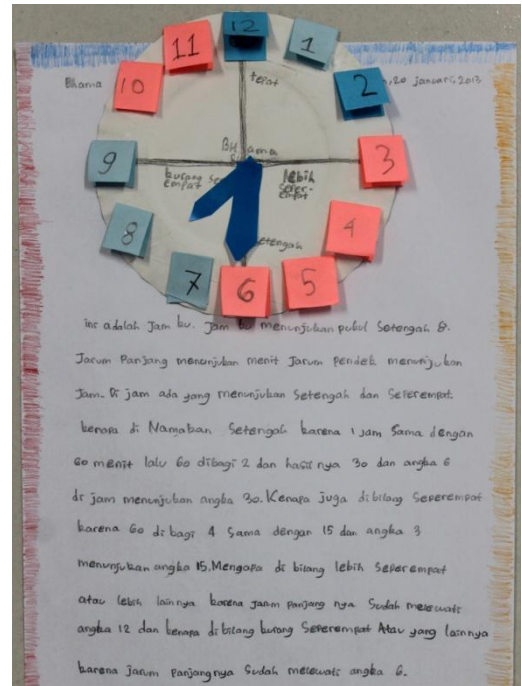 12
11
1
Bhama
10
tepat
2
, 20 januari, 2013
9
3
BHama
kurang se
empat
lebih
seper-
empat
8
4
setengah
7
6
5
ini adalah Jam ku. Jam ku menunjukan pukul setengah 8.
Jarum Panjang menunjukan menit Jarum pendek menunjukan
Jam. Di jam ada yang menunjukan setengah dan Seperempat.
kenapa di Namakan Setengah karena 1 jam Sama dengan
60 menit lalu 60 dibagi 2 dan hasil nya 30 dan angka 6
di jam menunjukan angka 30. Kenapa juga dibilang Seperempat
karena 60 di bagi 4 Sama dengan 15 dan angka 3
menunjukan angka 15. Mengapa di bilang lebih seperempat
atau lebih lainnya karena jarum panjang nya Sudah melewati
angka 12 dan kenapa dibilang kurang Seperempat Atau yang lainnya
karena jarum panjangnya Sudah melewati angka 6.